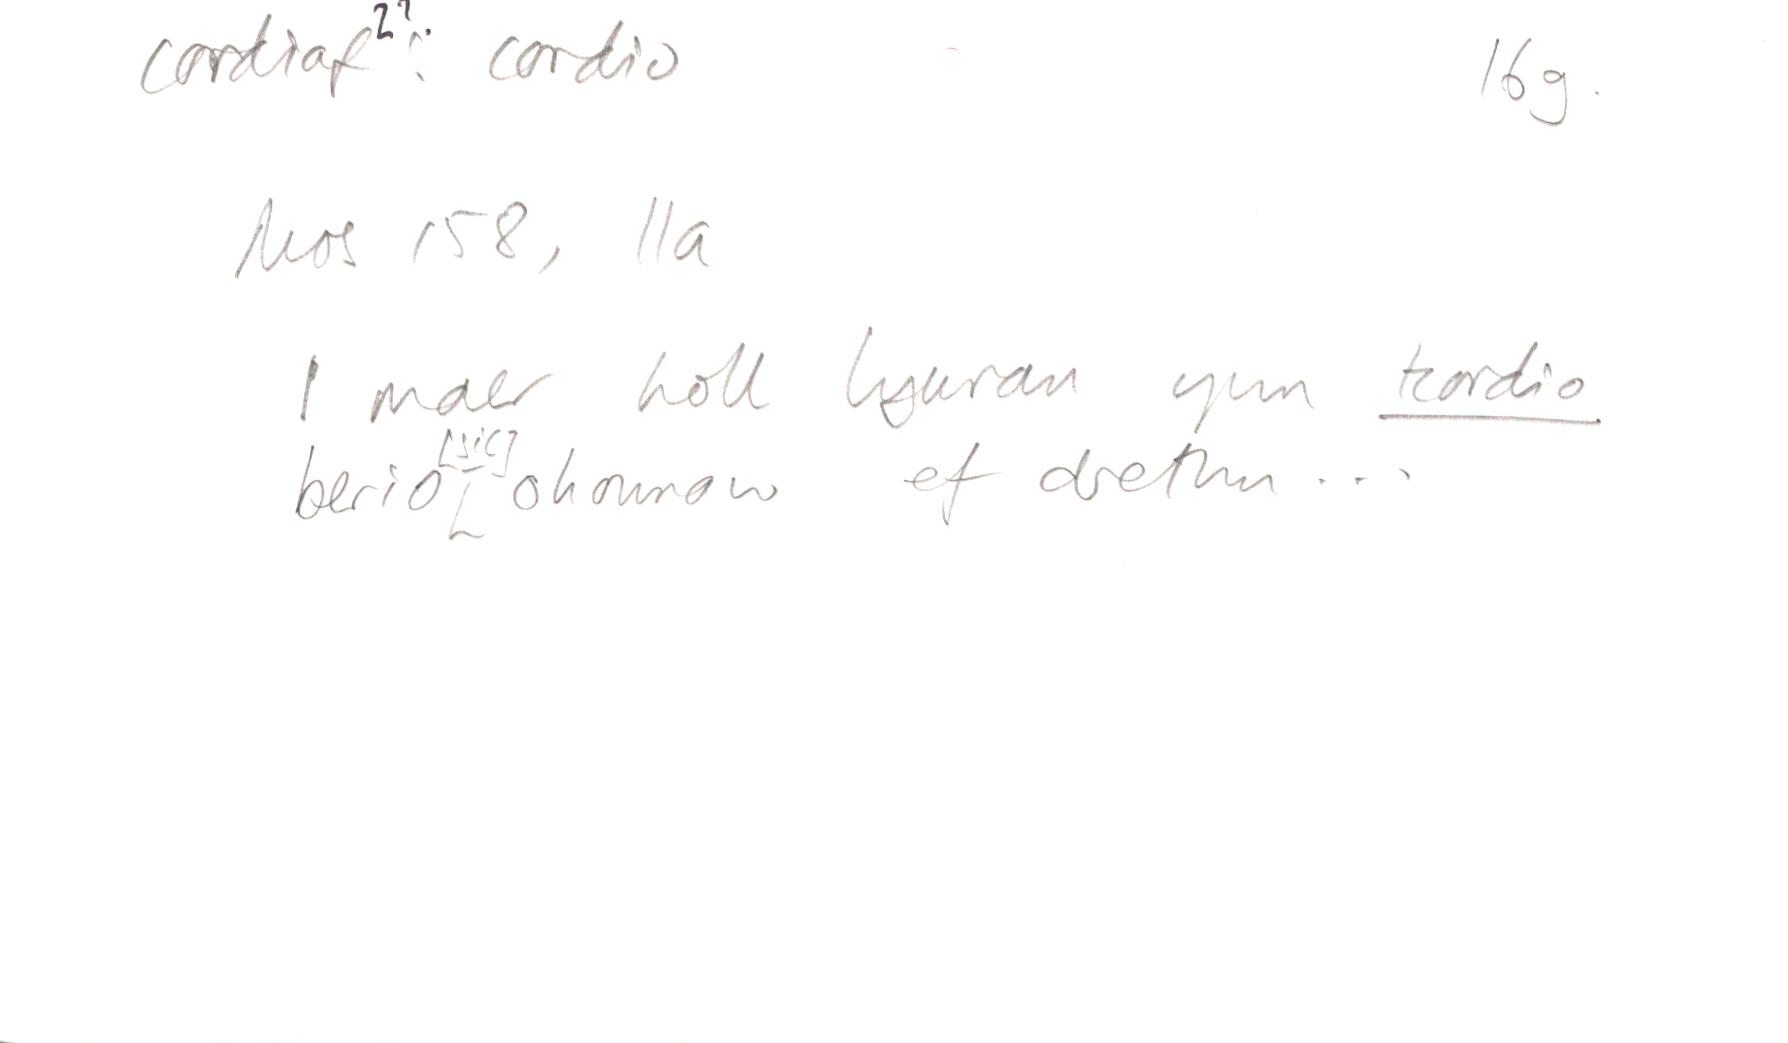 cordiaf²?: cordio 16g.
Mos 158, 11a
I maer holl lyuran yun kordio
berio [sic] ohonunaw ef drethu...